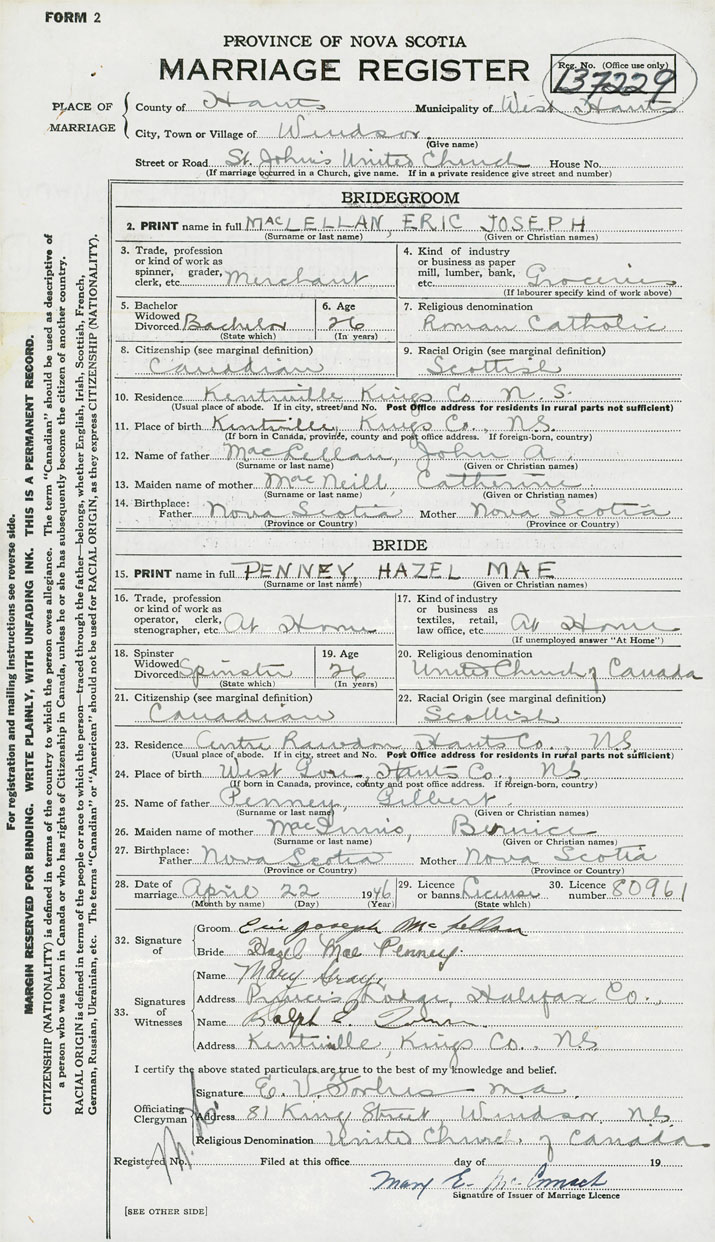 FORM 2
PROVINCE OF NOVA SCOTIA
MARRIAGE REGISTER
Reg. No. (Office use only)
137229
PLACE OF MARRIAGE
County of Hants Municipality of West Hants
City, Town or Village of Windsor
(Give name)
Street or Road St. John's United Church House No.
(If marriage occurred in a Church, give name. If in a private residence give street and number)
BRIDEGROOM
2. PRINT name in full MACLELLAN, ERIC JOSEPH
(Surname or last name) (Given or Christian names)
3. Trade, profession or kind of work as spinner, grader, clerk, etc. Merchant
4. Kind of industry or business as paper mill, lumber, bank, etc. Groceries
(If labourer specify kind of work above)
5. Bachelor Widowed Divorced Bachelor
(State which)
6. Age 26
(In years)
7. Religious denomination
Roman Catholic
8. Citizenship (see marginal definition)
Canadian
9. Racial Origin (see marginal definition)
Scottish
10. Residence Kentville Kings Co. N. S.
(Usual place of abode. If in city, street and No. Post Office address for residents in rural parts not sufficient)
11. Place of birth Kentville, Kings Co., N.S.
(If born in Canada, province, county and post office address. If foreign-born, country)
12. Name of father MacLellan, John A.
(Surname or last name) (Given or Christian names)
13. Maiden name of mother MacNeill, Catherine
(Surname or last name) (Given or Christian names)
14. Birthplace: Father Nova Scotia Mother Nova Scotia
(Province or Country) (Province or Country)
BRIDE
15. PRINT name in full PENNEY, HAZEL MAE
(Surname or last name) (Given or Christian names)
16. Trade, profession or kind of work as operator, clerk, stenographer, etc. At Home
17. Kind of industry or business as textiles, retail, law office, etc. At Home
(If unemployed answer "At Home")
18. Spinster Widowed Divorced Spinster
(State which)
19. Age 26
(In years)
20. Religious denomination
United Church of Canada
21. Citizenship (see marginal definition)
Canadian
22. Racial Origin (see marginal definition)
Scottish
23. Residence Centre Rawdon Hants Co., N.S.
(Usual place of abode. If in city, street and No. Post Office address for residents in rural parts not sufficient)
24. Place of birth West Gore, Hants Co., N.S.
(If born in Canada, province, county and post office address. If foreign-born, country)
25. Name of father Penney, Gilbert
(Surname or last name) (Given or Christian names)
26. Maiden name of mother MacInnis, Bernice
(Surname or last name) (Given or Christian names)
27. Birthplace: Father Nova Scotia Mother Nova Scotia
(Province or Country) (Province or Country)
28. Date of marriage April 22 1946
(Month by name) (Day) (Year)
29. Licence or banns License
(State which)
30. Licence number 80961
32. Signature of
Groom Eric Joseph McLellan
Bride Hazel Mae Penney
33. Signatures of Witnesses
Name Mary Gray
Address Princes Lodge, Halifax Co.,
Name Ralph E
Address Kentville, Kings Co., N.S
I certify the above stated particulars are true to the best of my knowledge and belief.
Officiating Clergyman
Signature E. V. Forbes M.A.
Address 81 King Street, Windsor, N.S.
Religious Denomination United Church of Canada
Registered No. Filed at this office day of 19
Mary E. McCormack
Signature of Issuer of Marriage Licence
[SEE OTHER SIDE]
For registration and mailing instructions see reverse side.
MARGIN RESERVED FOR BINDING. WRITE PLAINLY, WITH UNFADING INK. THIS IS A PERMANENT RECORD.
CITIZENSHIP (NATIONALITY) is defined in terms of the country to which the person owes allegiance. The term "Canadian" should be used as descriptive of
a person who was born in Canada or who has rights of Citizenship in Canada, unless he or she has subsequently become the citizen of another country.
RACIAL ORIGIN is defined in terms of the people or race to which the person—traced through the father—belongs, whether English, Irish, Scottish, French,
German, Russian, Ukrainian, etc. The terms "Canadian" or "American" should not be used for RACIAL ORIGIN, as they express CITIZENSHIP (NATIONALITY).